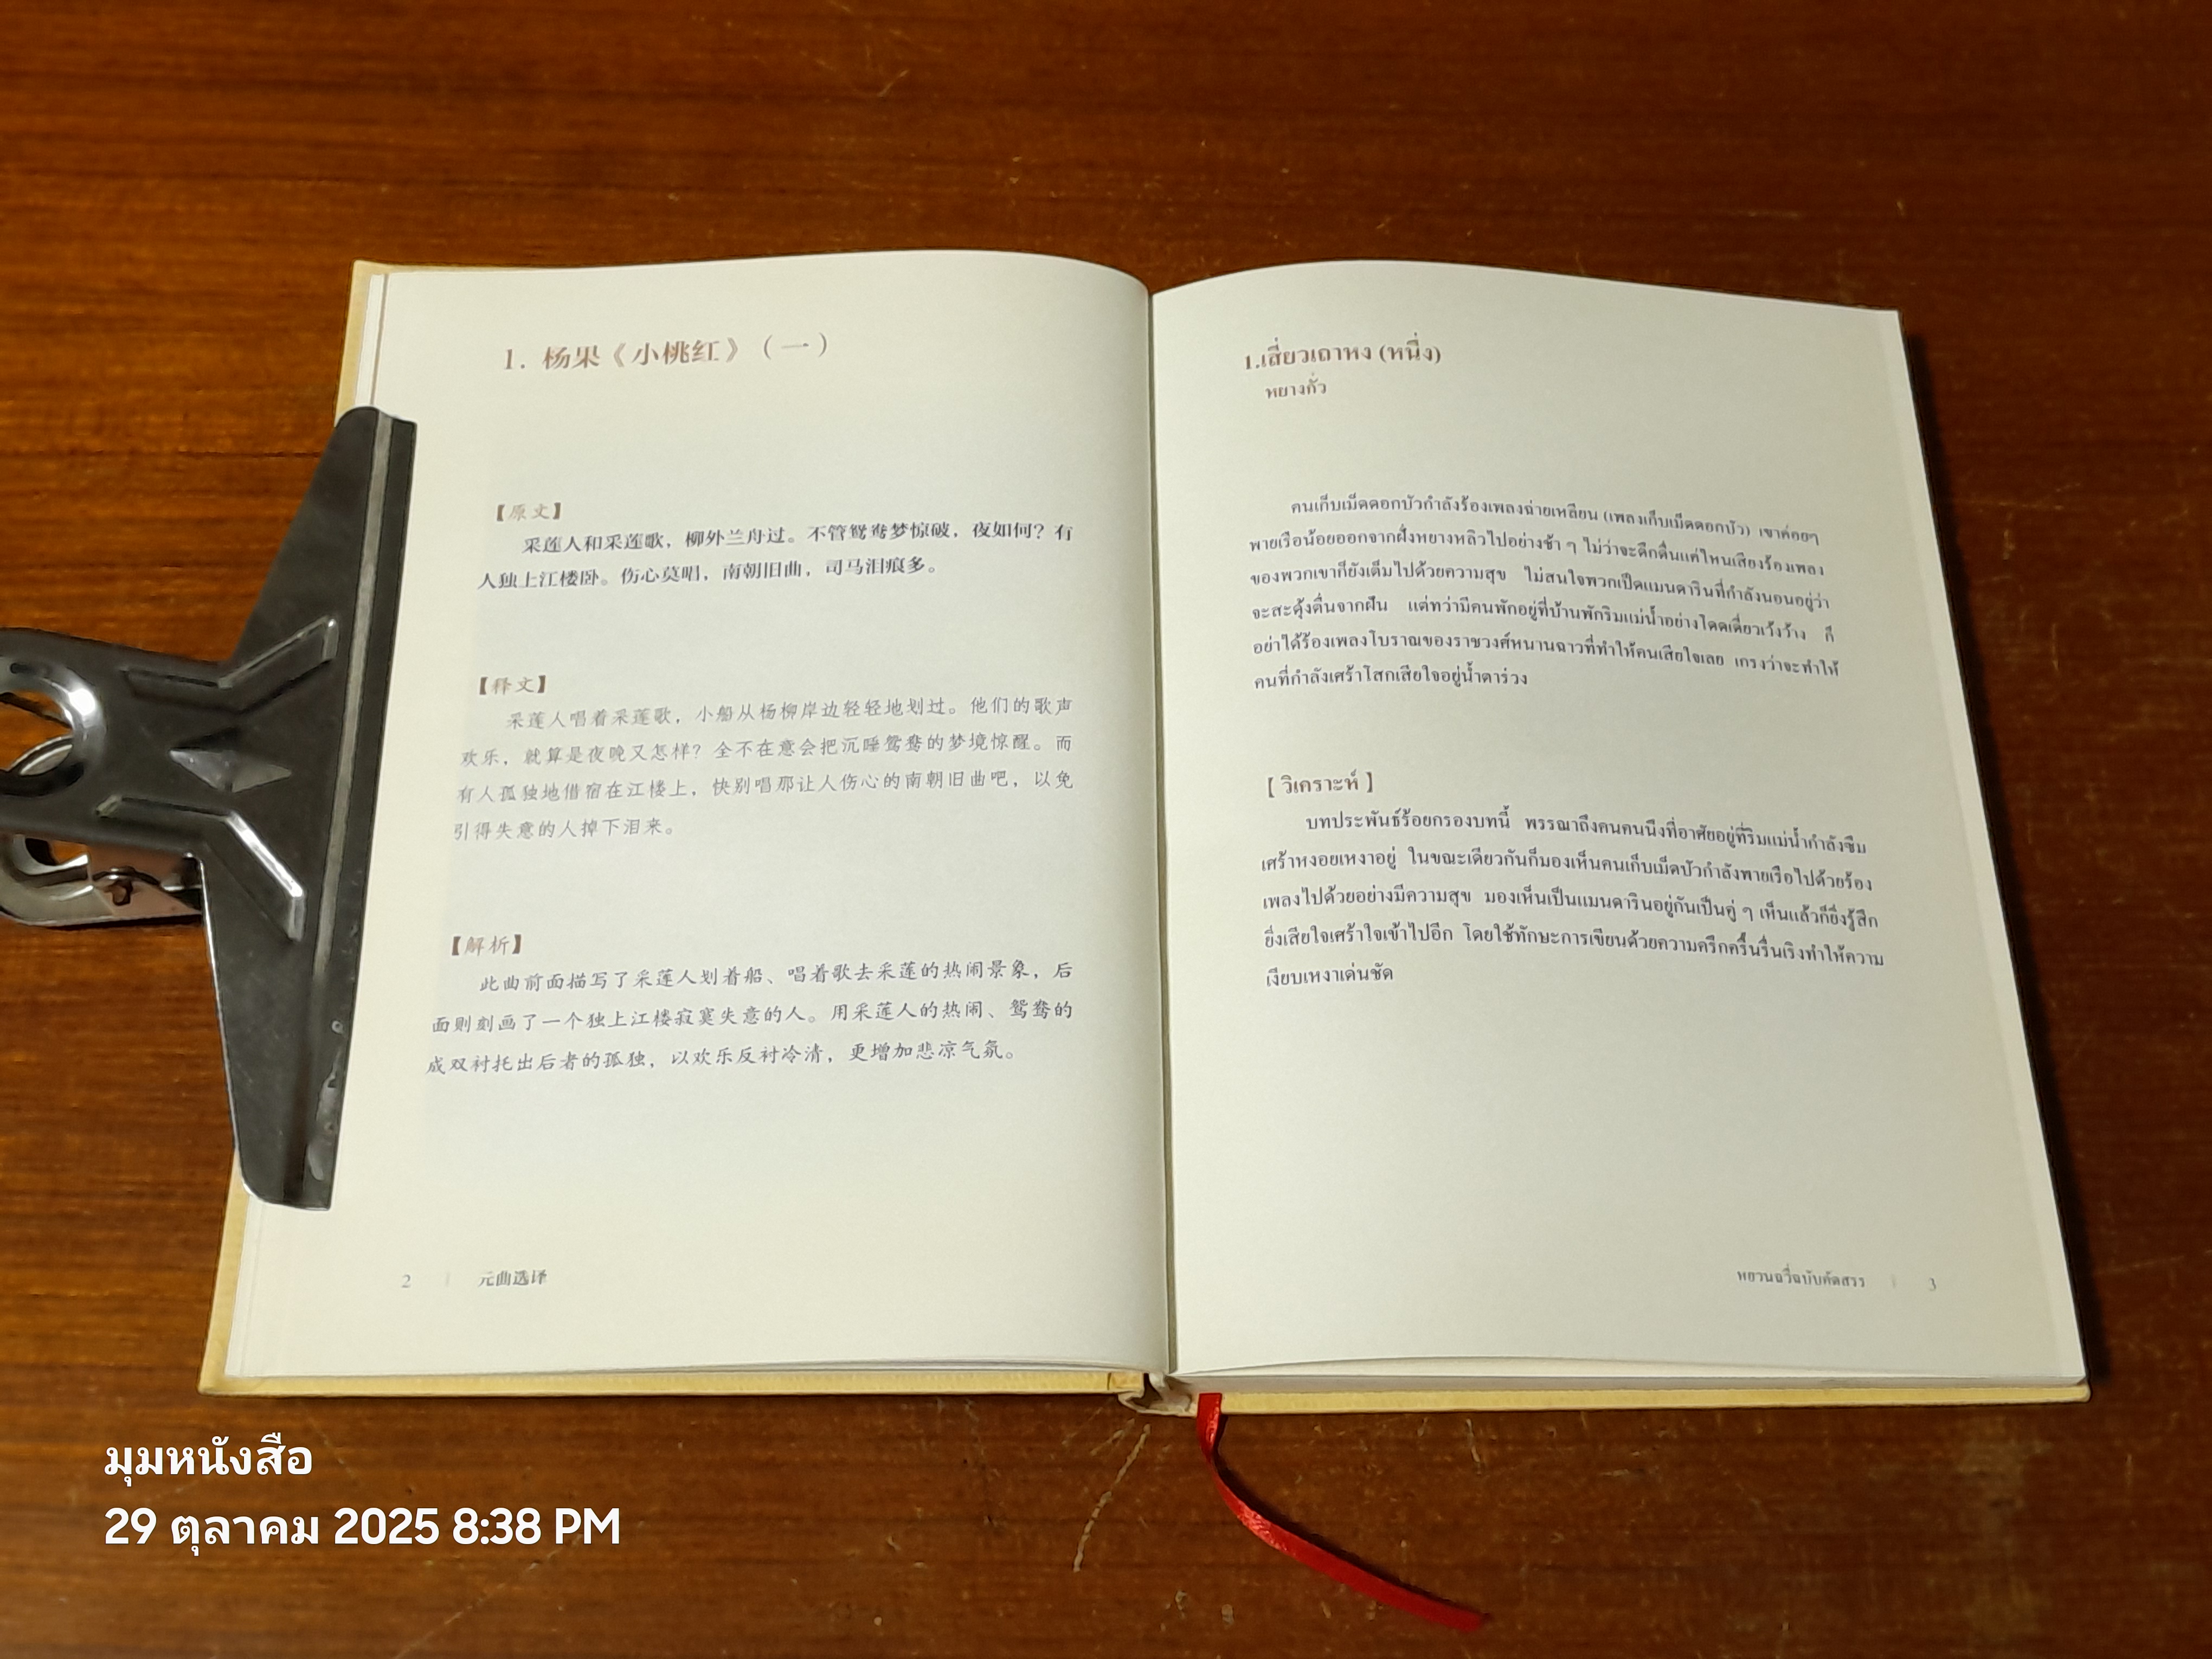 1. 杨果《小桃红》（一）
【原文】
采莲人和采莲歌，柳外兰舟过。不管鸳鸯梦惊破，夜如何？有
人独上江楼卧。伤心莫唱，南朝旧曲，司马泪痕多。
【释文】
采莲人唱着采莲歌，小船从杨柳岸边轻轻地划过。他们的歌声
欢乐，就算是夜晚又怎样？全不在意会把沉睡鸳鸯的梦境惊醒。而
有人孤独地借宿在江楼上，快别唱那让人伤心的南朝旧曲吧，以免
引得失意的人掉下泪来。
【解析】
此曲前面描写了采莲人划着船、唱着歌去采莲的热闹景象，后
面则刻画了一个独上江楼寂寞失意的人。用采莲人的热闹、鸳鸯的
成双衬托出后者的孤独，以欢乐反衬冷清，更增加悲凉气氛。
2 | 元曲选译
1.เสี่ยวเถาหง (หนึ่ง)
หยางกั่ว
คนเก็บเม็ดดอกบัวกำลังร้องเพลงฉ่ายเหลียน (เพลงเก็บเม็ดดอกบัว) เขาค่อยๆ
พายเรือน้อยออกจากฝั่งหยางหลิวไปอย่างช้า ๆ ไม่ว่าจะดึกดื่นแค่ไหนเสียงร้องเพลง
ของพวกเขาก็ยังเต็มไปด้วยความสุข ไม่สนใจพวกเป็ดแมนดารินที่กำลังนอนอยู่ว่า
จะสะดุ้งตื่นจากฝัน แต่ทว่ามีคนพักอยู่ที่บ้านพักริมแม่น้ำอย่างโดดเดี่ยวเว้งว้าง ก็
อย่าได้ร้องเพลงโบราณของราชวงศ์หนานฉาวที่ทำให้คนเสียใจเลย เกรงว่าจะทำให้
คนที่กำลังเศร้าโสกเสียใจอยู่น้ำตาร่วง
[ วิเคราะห์ ]
บทประพันธ์ร้อยกรองบทนี้ พรรณาถึงคนคนนึงที่อาศัยอยู่ที่ริมแม่น้ำกำลังซึม
เศร้าหงอยเหงาอยู่ ในขณะเดียวกันก็มองเห็นคนเก็บเม็ดบัวกำลังพายเรือไปด้วยร้อง
เพลงไปด้วยอย่างมีความสุข มองเห็นเป็นแมนดารินอยู่กันเป็นคู่ ๆ เห็นแล้วก็ยิ่งรู้สึก
ยิ่งเสียใจเศร้าใจเข้าไปอีก โดยใช้ทักษะการเขียนด้วยความครึกครื้นรื่นเริงทำให้ความ
เงียบเหงาเด่นชัด
หยวนฉวี่ฉบับคัดสรร | 3
มุมหนังสือ
29 ตุลาคม 2025 8:38 PM